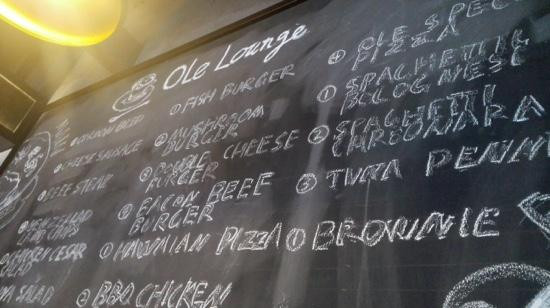 Ole Lounge
CORDON BLEU
CHEESE SAUSAGE
BEEF STEAK
CHICKEN CESAR
SALAD
SALAD
① FISH BURGER
② MUSHROOM
BURGER
③ DOUBLE CHEESE
BURGER
④ BACON BEEF
BURGER
① HAWAIIAN PIZZA
② BBQ CHICKEN
④ OLE SPEC
PIZZA
① SPAGHETTI
BOLOGNESE
② SPAGHETTI
CARBONARA
③ TUNA PENN
① BROWNIE